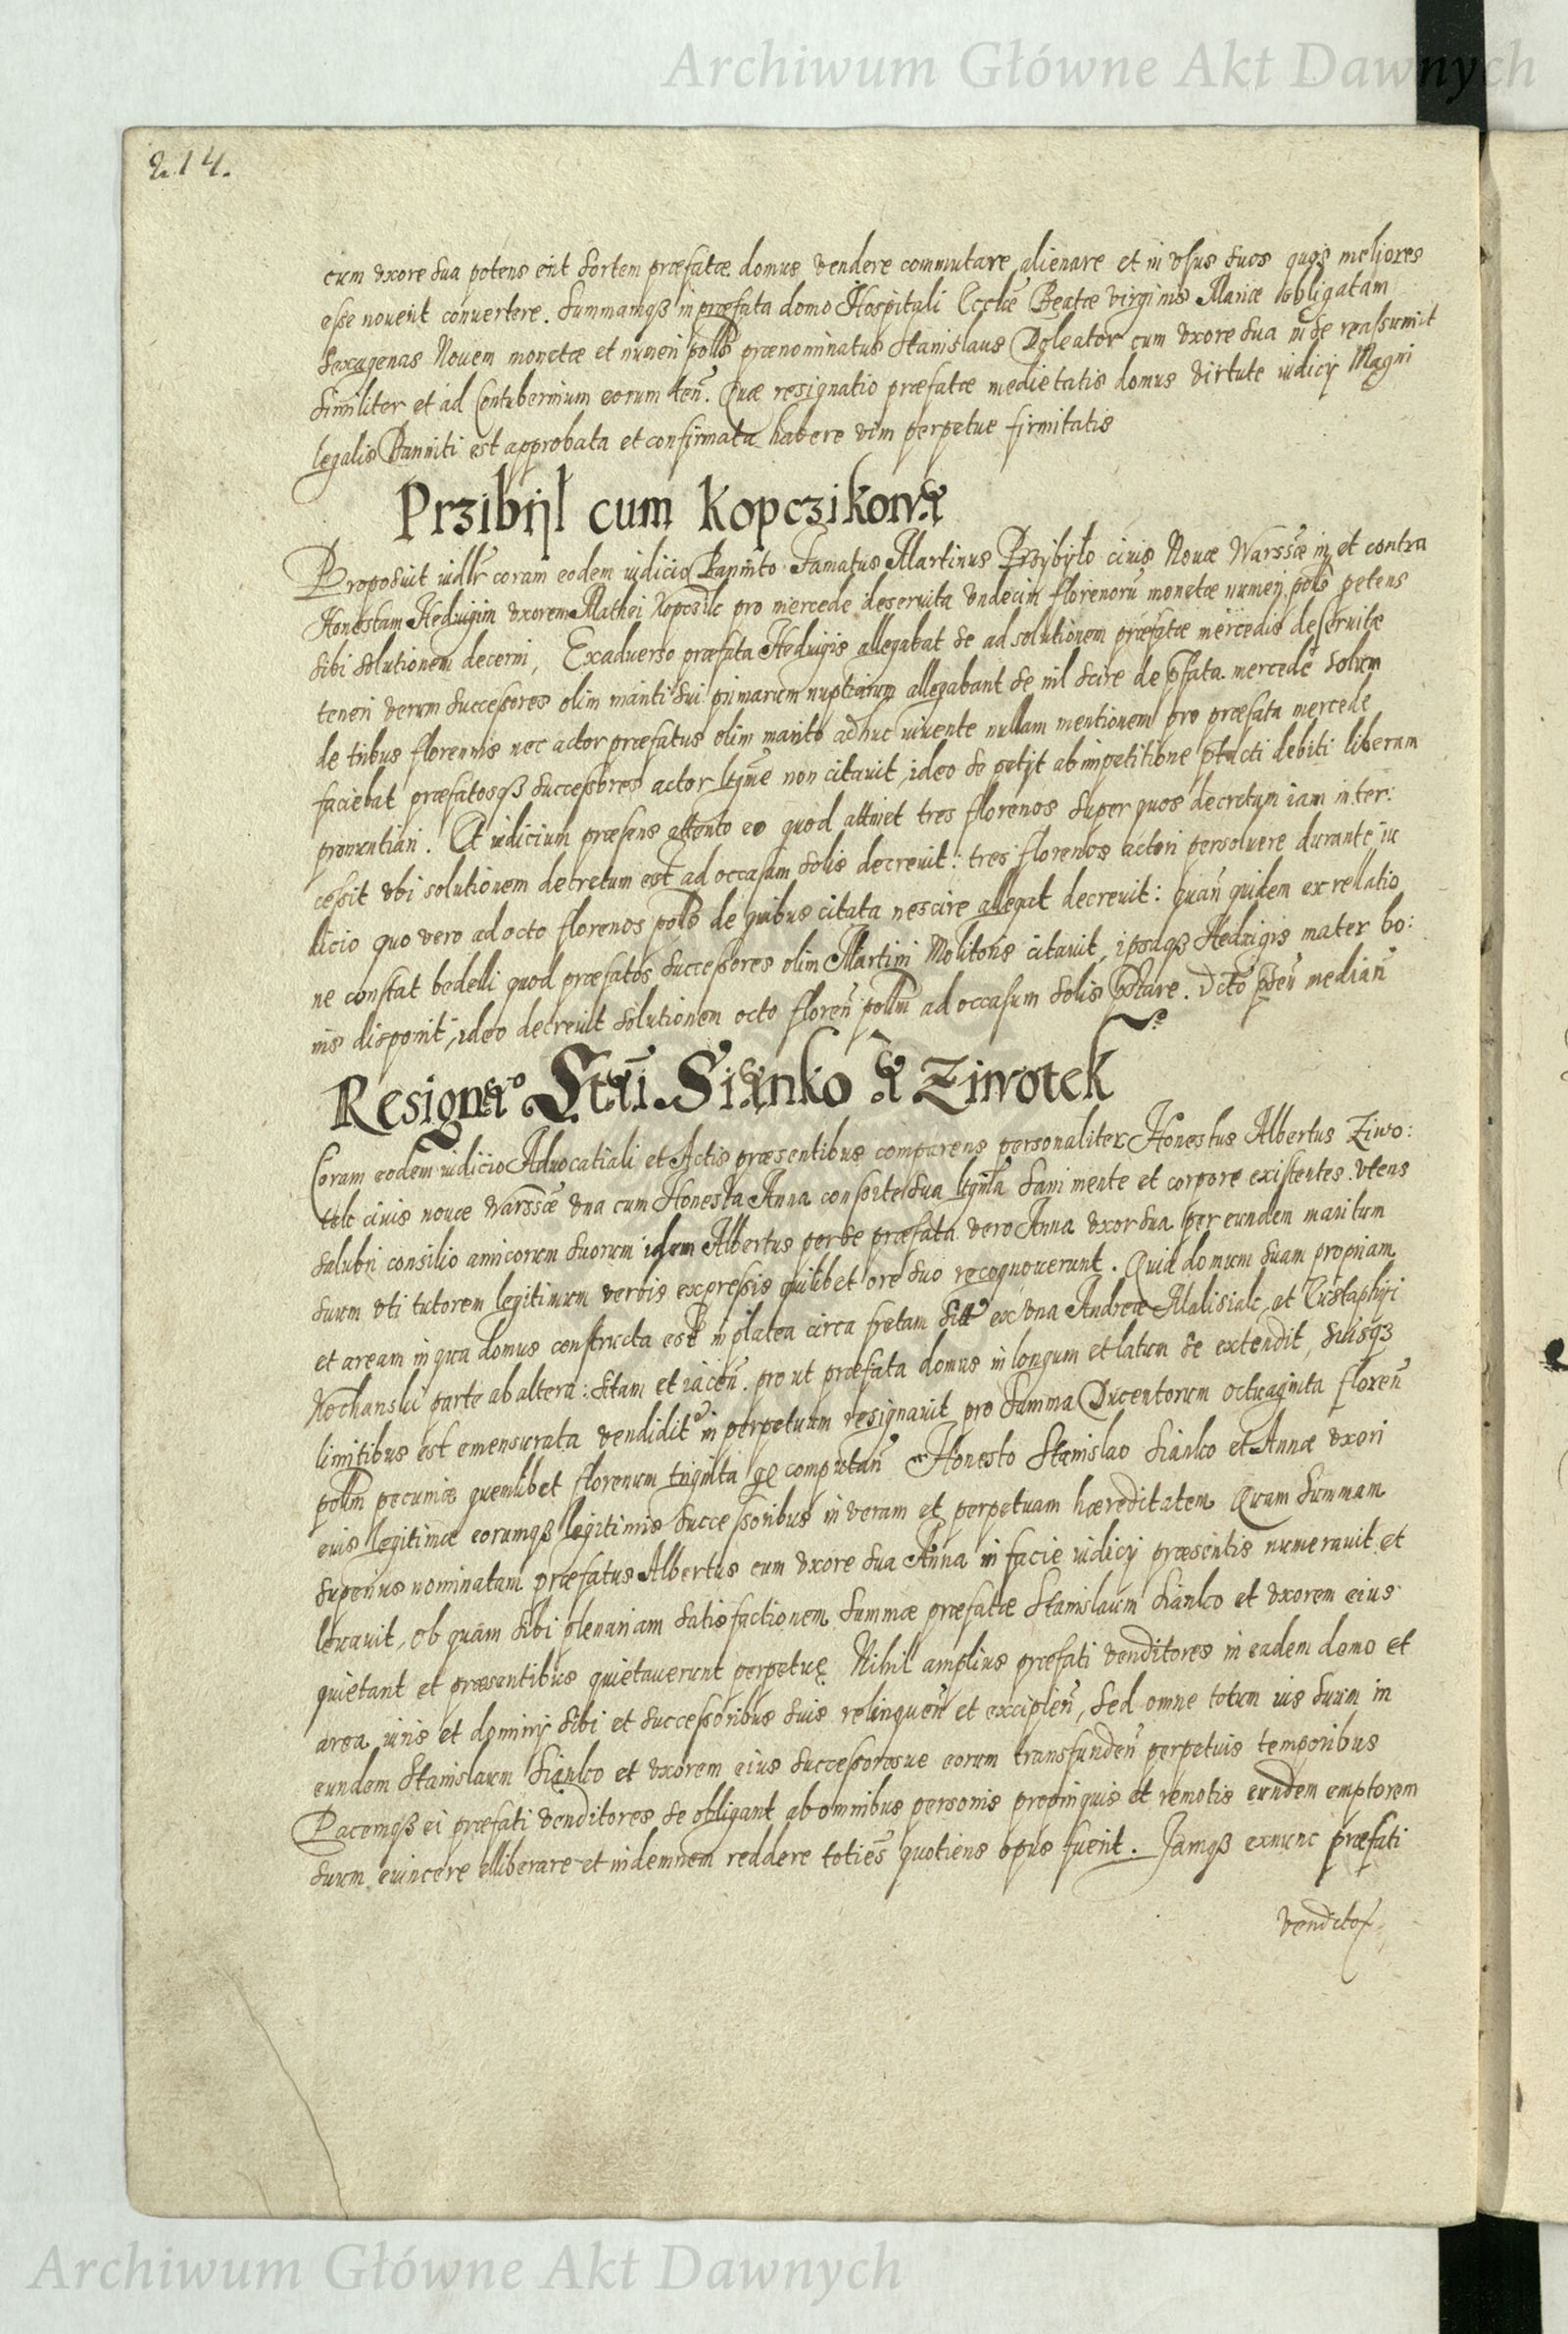 Archiwum Główne Akt Dawnych
214.
cum vxore sua potens erit sortem præfatæ domus vendere commutare alienare et in vsus suos quos meliores
esse nouerit conuertere. Summamqȝ in præfata domo Hospitali Eccliæ Beatæ virginis Mariæ obligatam
sexagenas Nouem monetæ et numeri polls prænominatus Stanislaus Doleator cum vxore sua in se reassumit
similiter et ad Contubernium eorum ten̄. Quæ resignatio præfatæ medietatis domus virtute iudicij Magni
legalis Banniti est approbata et confirmata habere vim perpetue firmitatis
Przibÿl cum Kopczikowa
Proposuit iudlr coram eodem iudicio Bannito Famatus Martinus Przybyło ciuis Nouæ Warssæ in et contra
Honestam Hedwigim vxorem Mathei Kopczik pro mercede deseruita vndecim florenorū monetæ numeri polo petens
sibi solutionem decerni, Exaduerso præfata Hedwigis allegabat se ad solutionem præfatæ mercedis deseruitæ
teneri verum successores olim mariti sui primarum nuptiarum allegabant se nil scire de pfata mercede solum
de tribus florennis nec actor præfatus olim marito adhuc viuente nullam mentionem pro præfata mercede
faciebat præfatosqȝ successores actor ltyme non citauit, ideo se petijt ab impetitione ptacti debiti liberam
pronuntiari. Et iudicium præsens attento eo quod attinet tres florenos super quos decretum iam inter:
cessit vbi solutionem decretum est ad occasum solis decreuit: tres florenos actori persoluere durante iu
dicio quo vero ad octo florenos polo de quibus citata nescire allegat decreuit: quan̄ quidem ex rellatio
ne constat bedelli quod præfatos successores olim Martini Molitoris citauit, ipsaqȝ Hedwigis mater bo:
nis disponit, ideo decreuit solutionem octo floren̄ pollm ad occasum solis pstare. Dcto psen median̄
Resigna° Stai. Sianko a Ziwotek
Coram eodem iudicio Aduocatiali et Actis præsentibus comparens personaliter Honestus Albertus Ziwo:
tek ciuis nouæ Warssæ vna cum Honesta Anna consorte sua ltyma sani mente et corpore existentes. vtens
salubri consilio amicorum suorum idem Albertus per se præfata vero Anna vxor sua per eundem maritum
suum vti tutorem legitimum verbis expressis quilibet ore suo recognouerunt. Quia domum suam propriam
et aream in qua domus constructa est in platea circa fretam sitt ex vna Andreæ Malisiak et Cristaphori
Kochanski parte ab altera: sitam et iacen̄. pro ut præfata domus in longum et latum se extendit, suisqȝ
limitibus est emensurata vendidit in perpetuum resignauit pro summa Ducentorum octuaginta floren̄
pollm pecuniæ quemlibet florenum triginta gr computan̄ Honesto Stanislao Sianko et Annæ vxori
eius legitimæ eorumqȝ legitimis successoribus in veram et perpetuam hæreditatem Quam summam
superius nominatam præfatus Albertus cum vxore sua Anna in facie iudicij præsentis numerauit et
leuauit, ob quam sibi plenariam satisfactionem summæ præfatæ Stanislaum Sianko et vxorem eius
quietant et præsentibus quietauerunt perpetuę Nihil amplius præfati venditores in eadem domo et
area iuris et dominij sibi et successoribus suis relinquen̄ et excipien̄, sed omne totum ius suum in
eundem Stanislaum Sianko et vxorem eius successoresue eorum transfunden̄ perpetuis temporibus
Pacemqȝ ei præfati venditores se obligant ab omnibus personis propinquis et remotis eundem emptorem
suum euincere elliberare et indemnem reddere totiēs quotiens opus fuerit. Jamqȝ exnunc præfati
venditor
Archiwum Główne Akt Dawnych